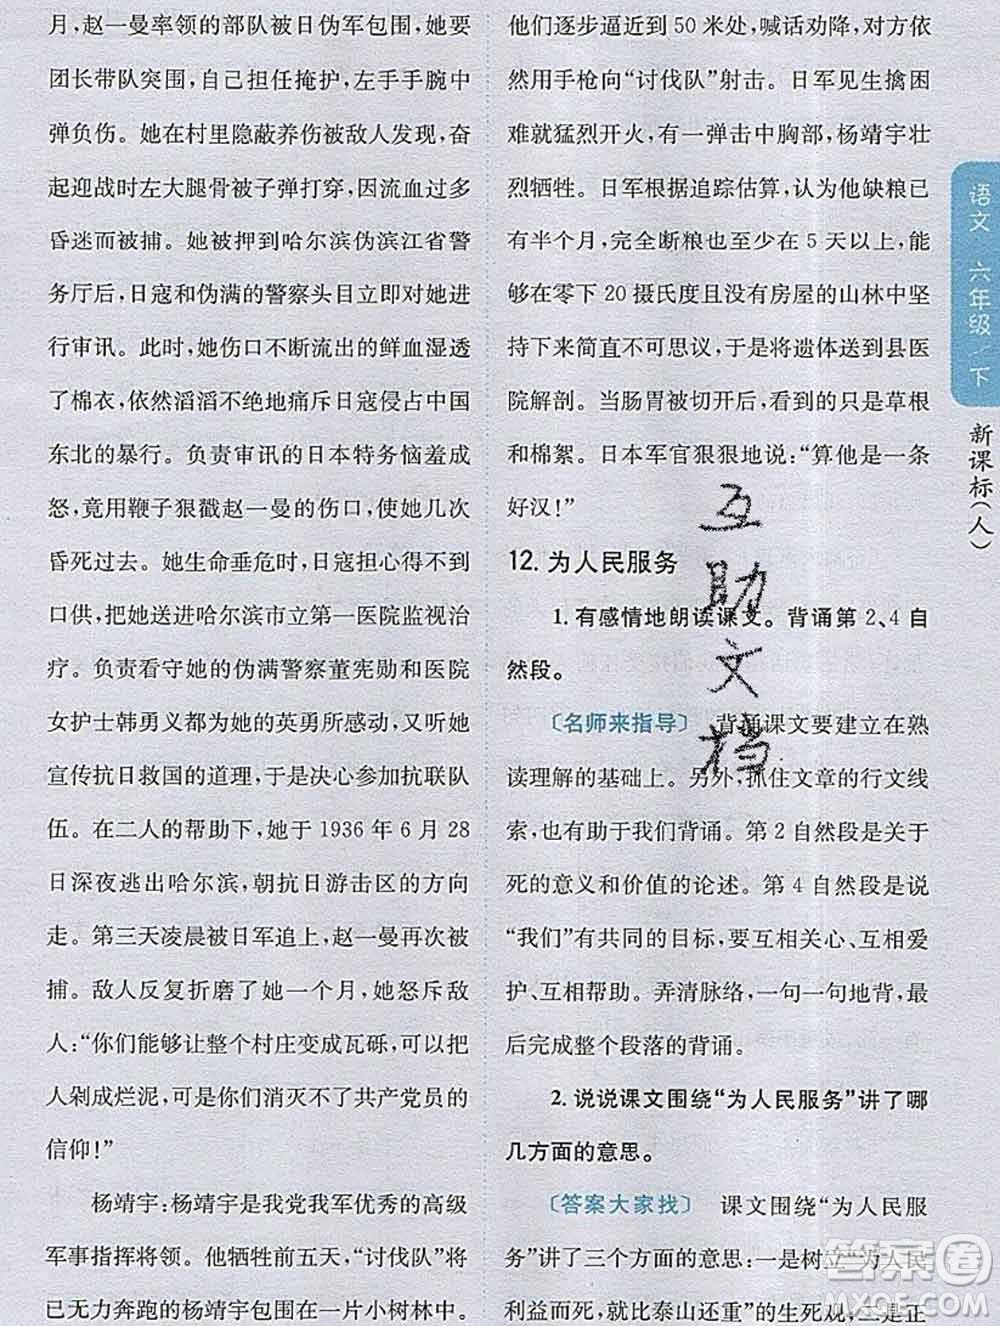 月，赵一曼率领的部队被日伪军包围，她要
团长带队突围，自己担任掩护，左手手腕中
弹负伤。她在村里隐蔽养伤被敌人发现，奋
起迎战时左大腿骨被子弹打穿，因流血过多
昏迷而被捕。她被押到哈尔滨伪滨江省警
务厅后，日寇和伪满的警察头目立即对她进
行审讯。此时，她伤口不断流出的鲜血湿透
了棉衣，依然滔滔不绝地痛斥日寇侵占中国
东北的暴行。负责审讯的日本特务恼羞成
怒，竟用鞭子狠戳赵一曼的伤口，使她几次
昏死过去。她生命垂危时，日寇担心得不到
口供，把她送进哈尔滨市立第一医院监视治
疗。负责看守她的伪满警察董宪勋和医院
女护士韩勇义都为她的英勇所感动，又听她
宣传抗日救国的道理，于是决心参加抗联队
伍。在二人的帮助下，她于 1936 年 6 月 28
日深夜逃出哈尔滨，朝抗日游击区的方向
走。第三天凌晨被日军追上，赵一曼再次被
捕。敌人反复折磨了她一个月，她怒斥敌
人：“你们能够让整个村庄变成瓦砾，可以把
人剁成烂泥，可是你们消灭不了共产党员的
信仰！”
杨靖宇：杨靖宇是我党我军优秀的高级
军事指挥将领。他牺牲前五天，“讨伐队”将
已无力奔跑的杨靖宇包围在一片小树林中。
他们逐步逼近到 50 米处，喊话劝降，对方依
然用手枪向“讨伐队”射击。日军见生擒困
难就猛烈开火，有一弹击中胸部，杨靖宇壮
烈牺牲。日军根据追踪估算，认为他缺粮已
有半个月，完全断粮也至少在 5 天以上，能
够在零下 20 摄氏度且没有房屋的山林中坚
持下来简直不可思议，于是将遗体送到县医
院解剖。当肠胃被切开后，看到的只是草根
和棉絮。日本军官狠狠地说：“算他是一条
好汉！”
12. 为人民服务
1. 有感情地朗读课文。背诵第 2、4 自
然段。
〔名师来指导〕 背诵课文要建立在熟
读理解的基础上。另外，抓住文章的行文线
索，也有助于我们背诵。第 2 自然段是关于
死的意义和价值的论述。第 4 自然段是说
“我们”有共同的目标，要互相关心、互相爱
护、互相帮助。弄清脉络，一句一句地背，最
后完成整个段落的背诵。
2. 说说课文围绕“为人民服务”讲了哪
几方面的意思。
〔答案大家找〕 课文围绕“为人民服
务”讲了三个方面的意思：一是树立“为人民
利益而死，就比泰山还重”的生死观，二是正
语文 六年级/下
新课标（人）
互
助
文
档
答案圈
MXQE.COM